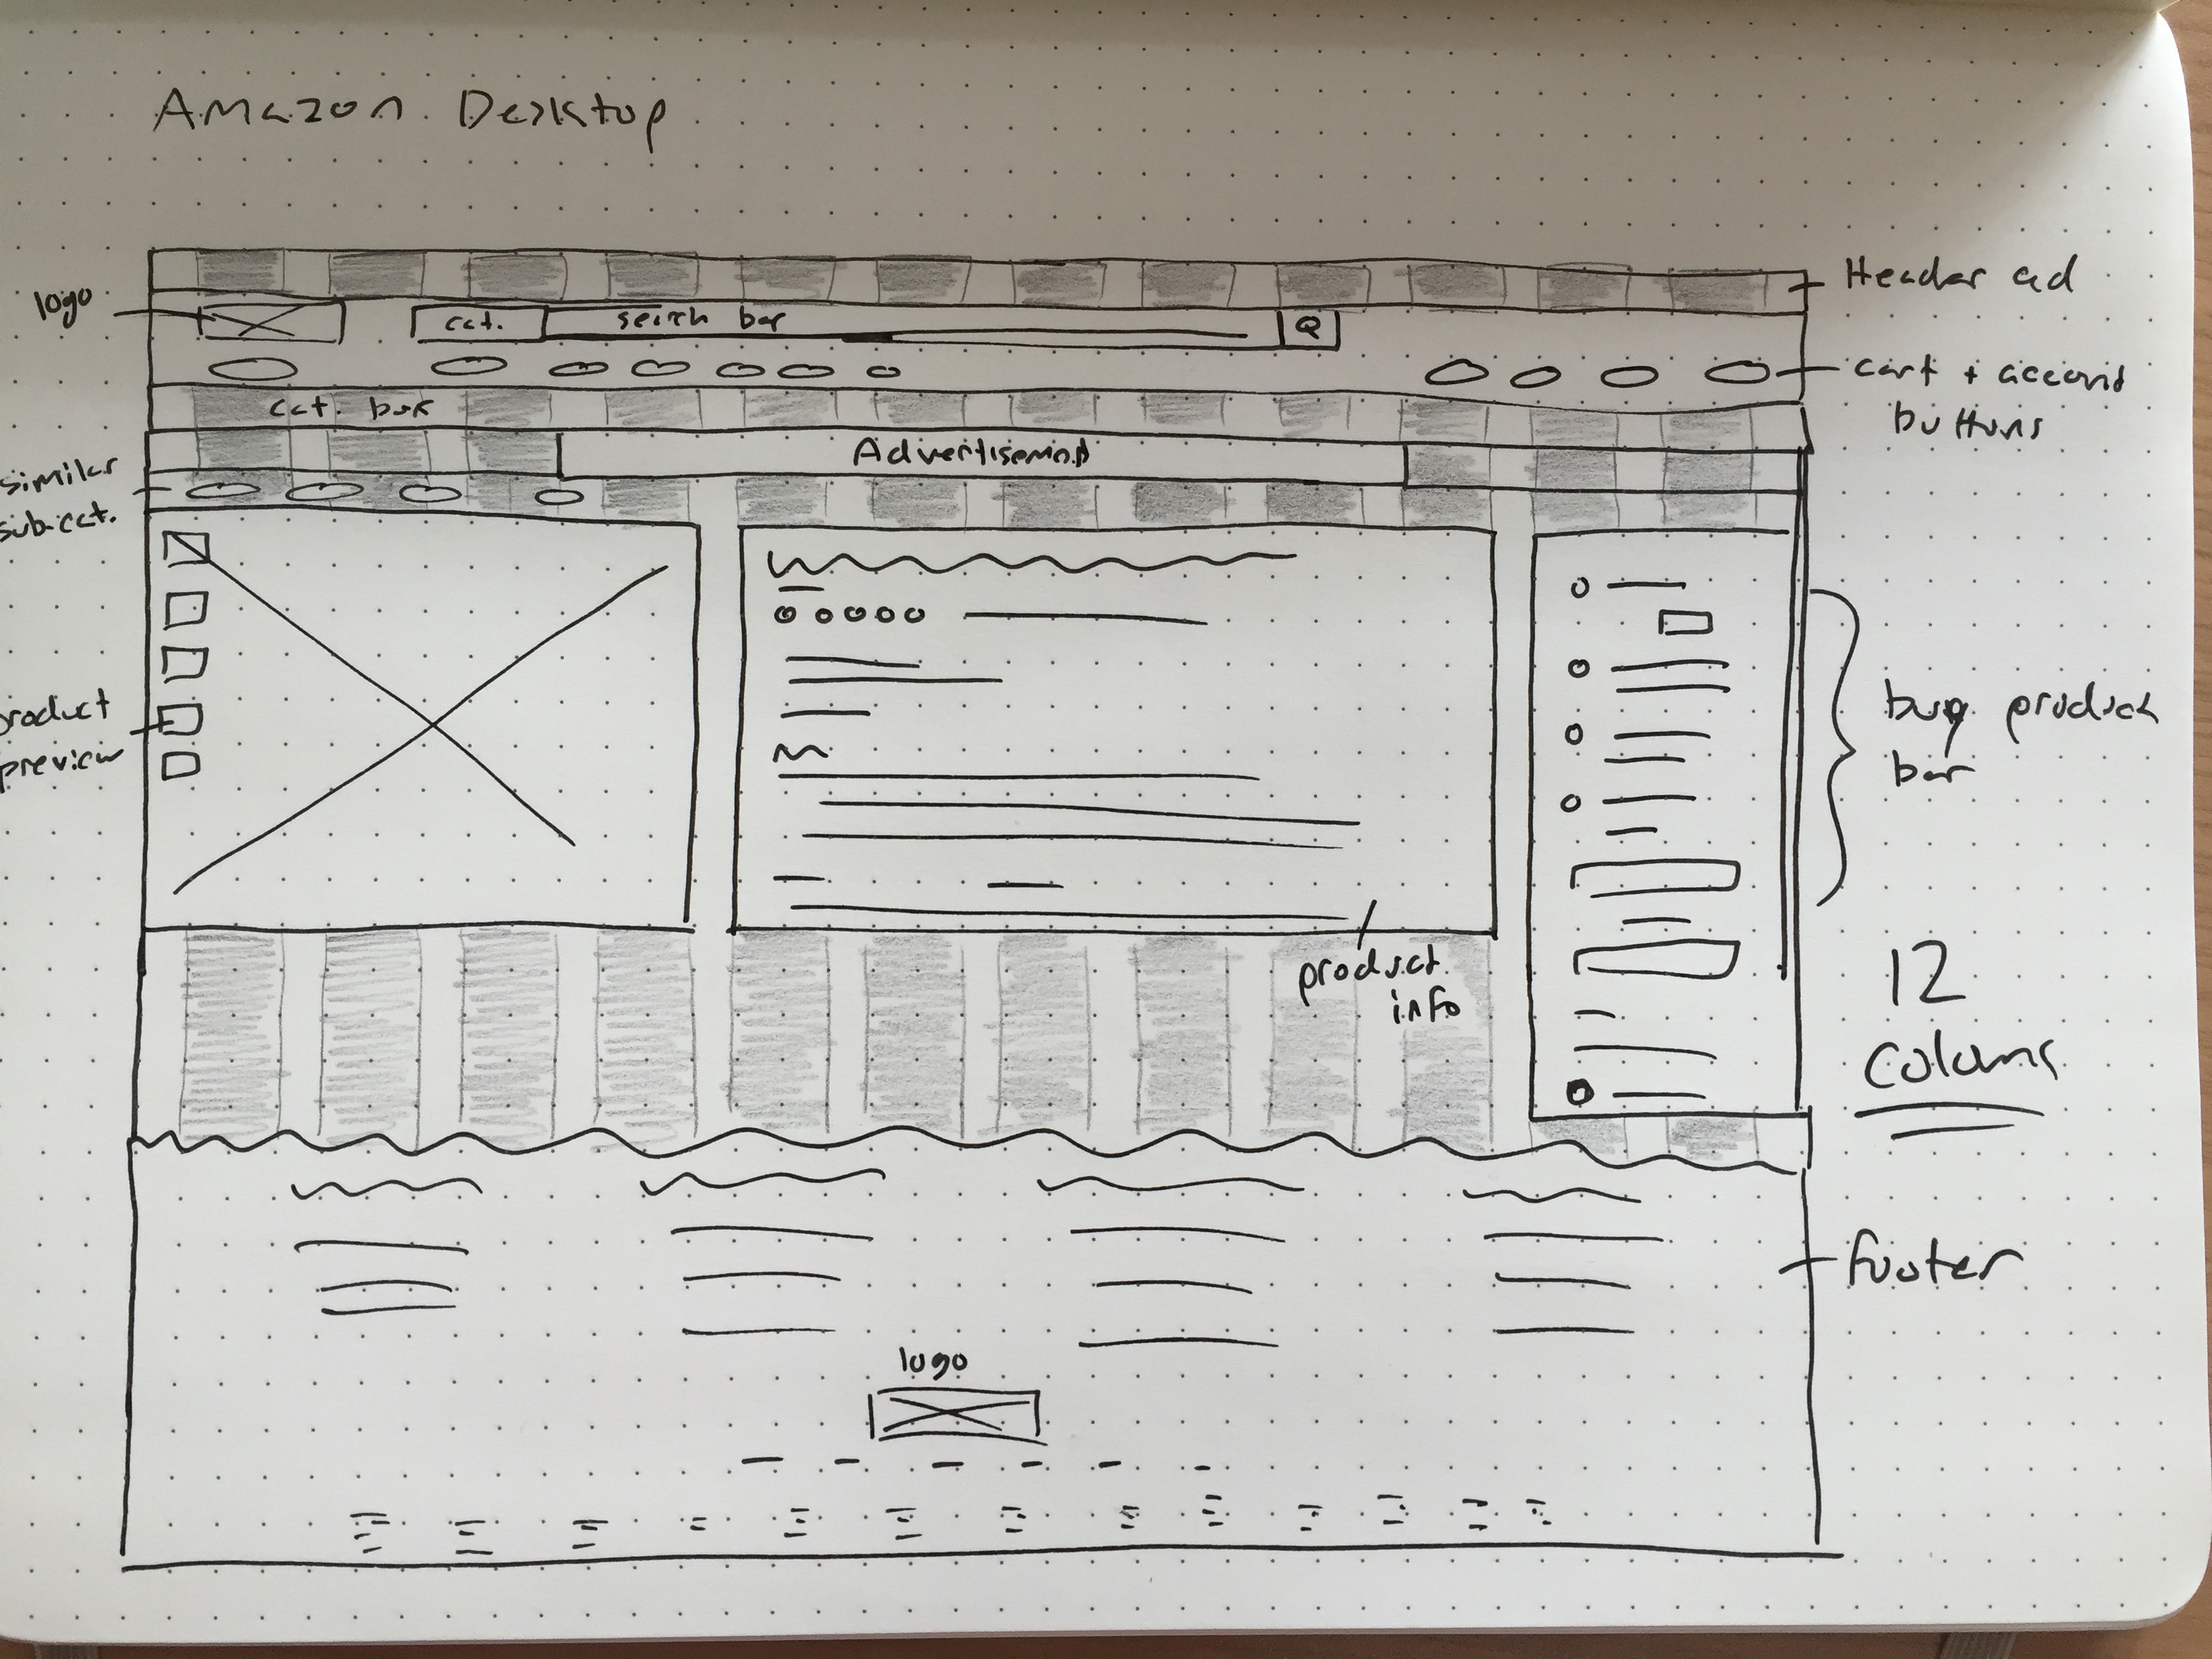 Amazon Desktop
Header ad
logo
cat.
search bar
cart + account
buttons
cat. bar
Advertisement
similar
sub-cat.
product
preview
buy product
bar
product
info
12
Columns
footer
logo